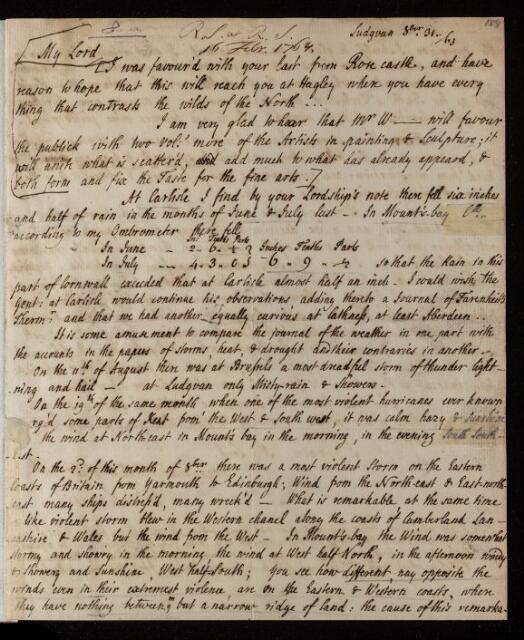 R. S. a R. S. Ludgvan 8ber 31. /63
16 Febr. 1764.
My Lord
It was favour'd with your last from Rose castle, and have
reason to hope that this will reach you at Hagley where you have every
thing that contrasts the wilds of the North ...
I am very glad to hear that Mr W—— will favour
the publick with two vol.s more of the Artists in painting & Sculpture; it
will unite what is scater'd, add much to what has already appeard, &
both form and fix the Taste for the fine arts.]
At Carlisle I find by your Lordship's note there fell six inches
and half of rain in the months of June & July last — In Mount's-bay
according to my Ombrometer there fell
In. Tenths Parts
In June — 2. 6. ½ 2 Inches Tenths Parts
In July — 4. 3. 0 3 6. 9. ½ so that the Rain in this
part of Cornwall exceeded that at Carlisle almost half an inch. I could wish the
Gent: at Carlisle would continue his observations, adding thereto a Journal of Farenheit's
Therm.r and that we had another equally curious at Cathness, at least Aberdeen ..
It is some amusement to compare the journal of the weather in one part with
the accounts in the papers of storms, heat, & drought and their contraries in another ..
On the 11.th of August there was at Brussels a most dreadful storm of thunder light-
ning and hail — at Ludgvan only Misty-rain & Showers.
On the 19th of the same month when one of the most violent hurricanes ever known
rav'd some parts of Kent from the West & South west, it was calm hazy & Sunshine
the wind at North-east in Mount's bay in the morning, in the evening South South-
East.
On the 2.d of this month of 8ber there was a most violent Storm on the Eastern
Coasts of Britain from Yarmouth to Edinburgh; Wind from the North-east & East-north-
east many ships distress'd, many wreck'd — What is remarkable at the same time
a like violent storm blew in the Western chanel along the coasts of Cumberland Lan-
cashire & Wales but the wind from the West — In Mount's-bay the Wind was somewhat
stormy and showry in the morning the wind at West half North, in the afternoon windy
& Showery and Sunshine, West half-South; You see how different, nay opposite the
winds even in their extremest violence, are on the Eastern & Western coasts, where
they have nothing between 'em but a narrow ridge of land: the cause of this remarka-